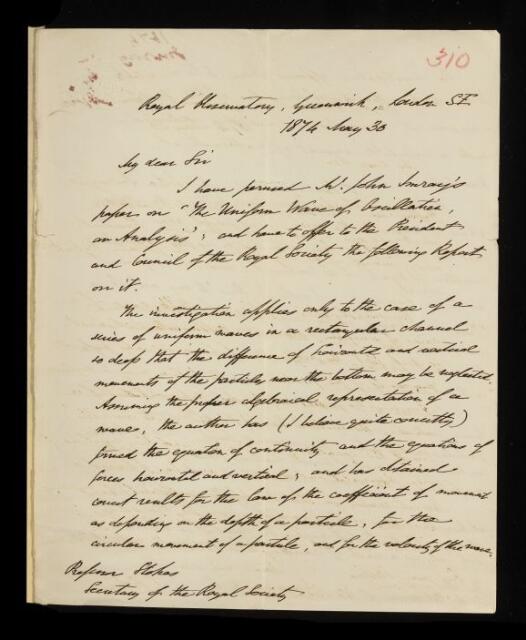 310
Royal Observatory, Greenwich, London SE
1874 May 30
My dear Sir
I have perused Mr. John Imray's
paper on "The Uniform Wave of Oscillation,
an Analysis"; and have to offer to the President
and Council of the Royal Society the following Report
on it.
The investigation applies only to the case of a
series of uniform waves in a rectangular channel
so deep that the difference of horizontal and vertical
movements of the particles near the bottom may be neglected.
Assuming the proper algebraical representation of a
wave, the author has (I believe quite correctly)
formed the equation of continuity and the equations of
forces horizontal and vertical; and has obtained
correct results for the law of the coefficient of movement
as depending on the depth of a particle, for the
circular movement of a particle, and for the velocity of the wave.
Professor Stokes
Secretary of the Royal Society